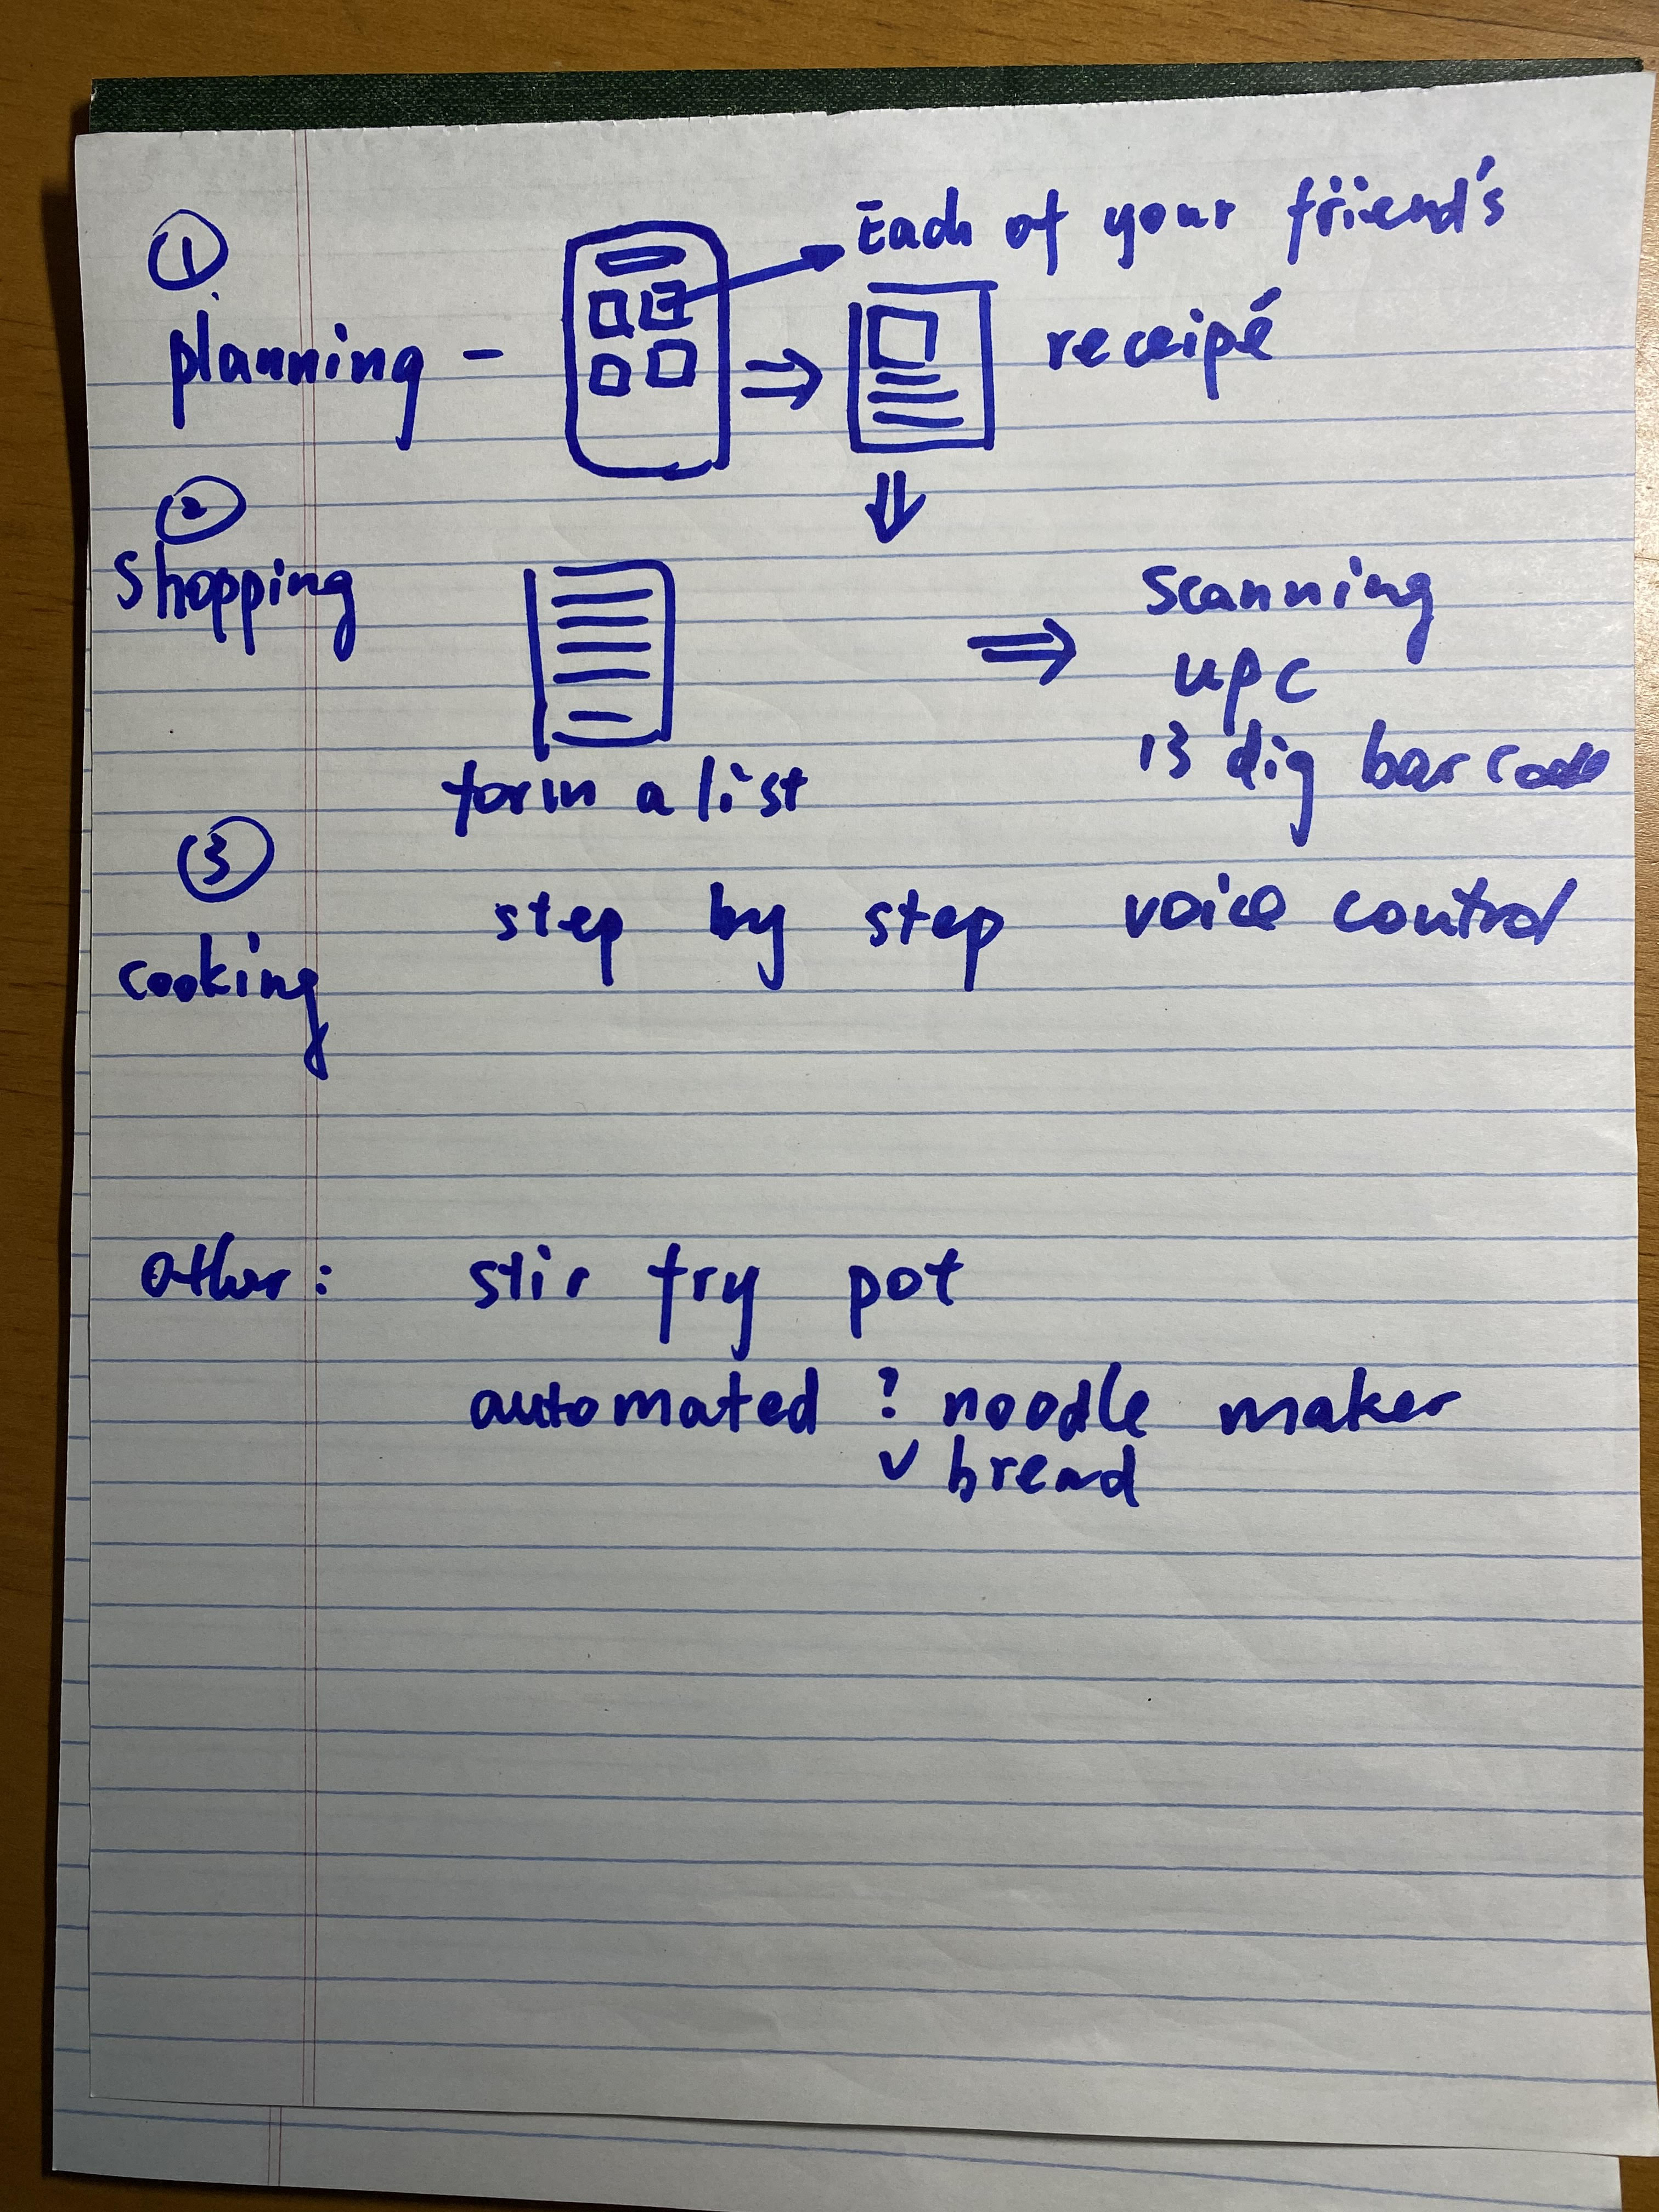 ①
planning -
Each of your friend's
receipé
②
Shopping
form a list
Scanning
UPC
13 dig barcode
③
cooking
step by step voice control
Other: stir fry pot
automated ? noodle maker
✓ bread